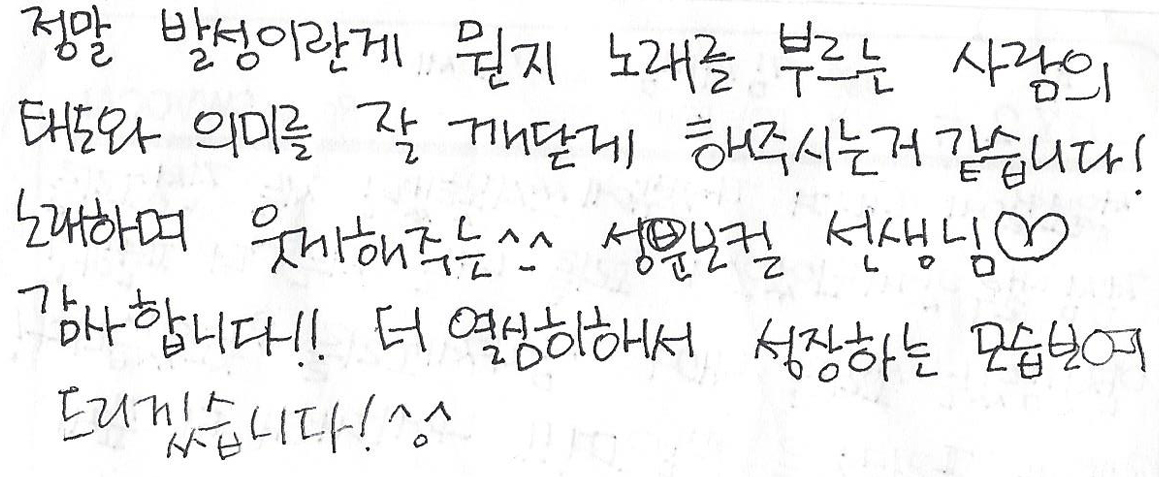 정말 발성이란게 뭔지 노래를 부르는 사람의
태도와 의미를 잘 깨닫게 해주시는거 같습니다!
노래하며 웃게해주는^^ 성문보컬 선생님♡
감사합니다!! 더 열심히해서 성장하는 모습보여
드리겠습니다! ^^